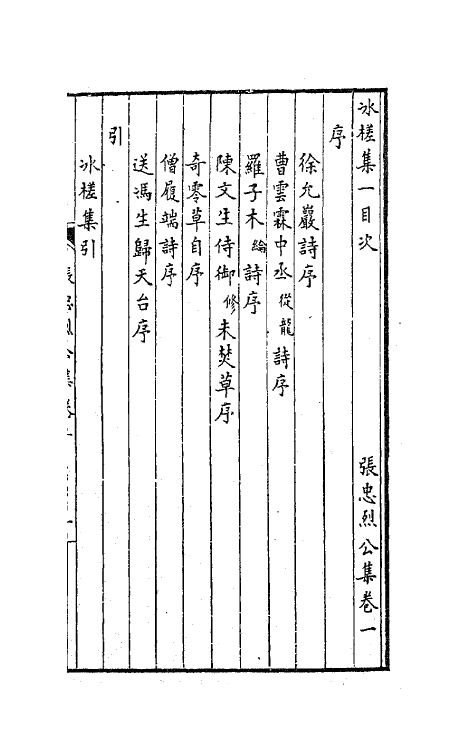 冰槎集一目次 張忠烈公集卷一
序
徐允巖詩序
曹雲霖中丞從龍詩序
羅子木綸詩序
陳文生侍御修未焚草序
奇零草自序
僧履端詩序
送馮生歸天台序
引
冰槎集引
張忠烈公集卷一